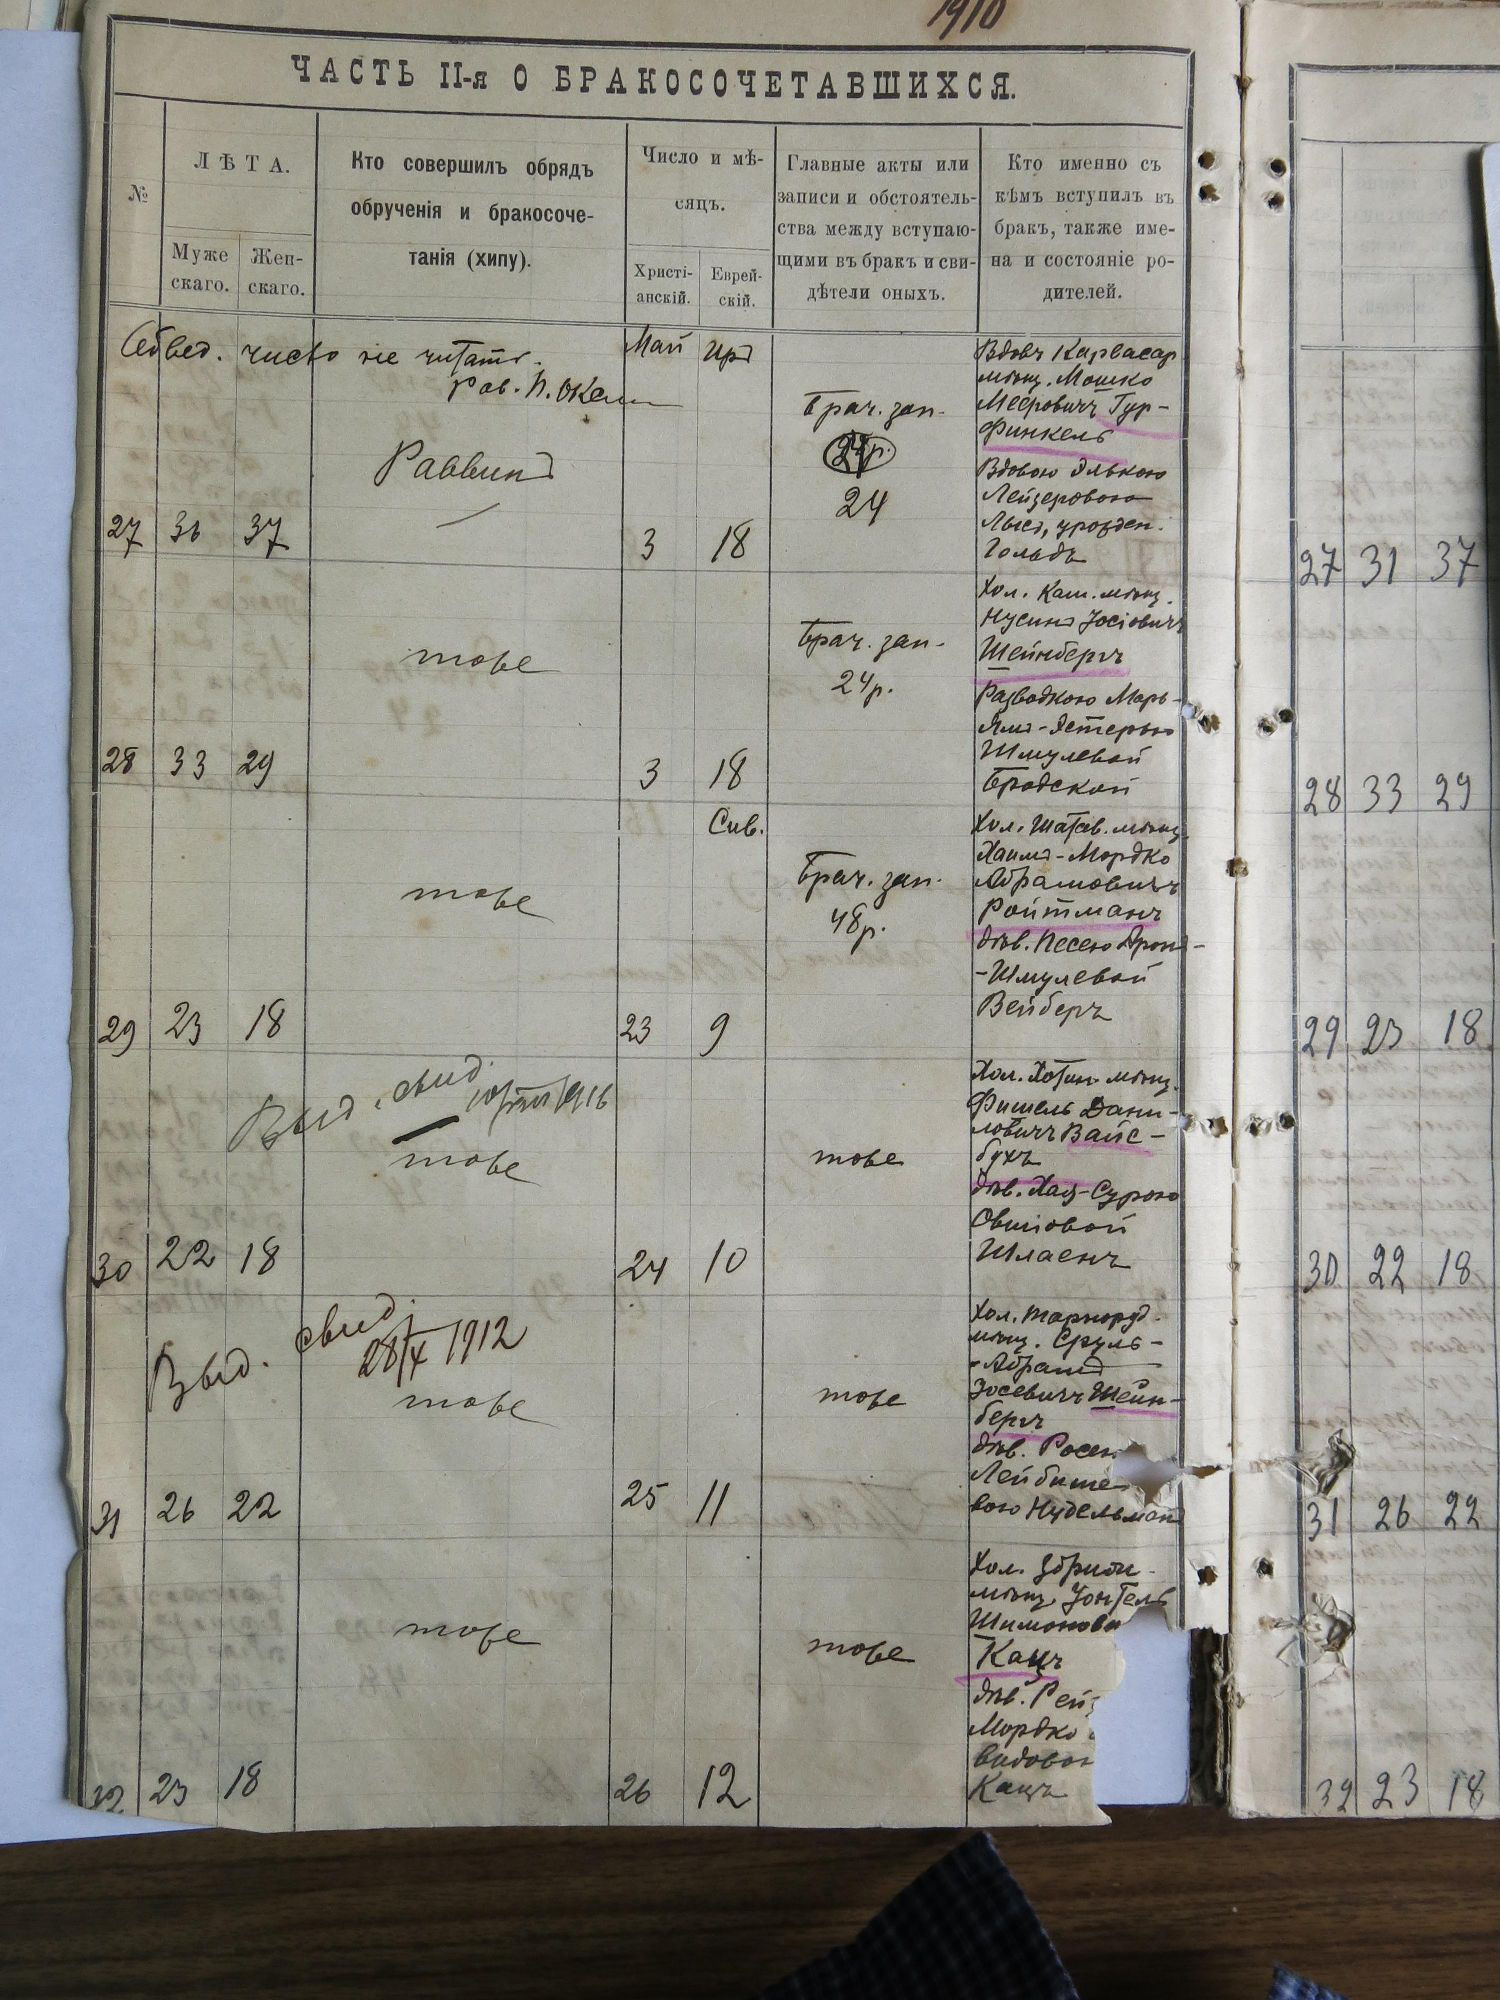 1910
ЧАСТЬ II-я О БРАКОСОЧЕТАВШИХСЯ.
№
ЛѢТА.
Муже
скаго.
Жен-
скаго.
Кто совершилъ обрядъ
обрученія и бракосоче-
танія (хипу).
Число и мѣ-
сяцъ.
Христі-
анскій.
Еврей-
скій.
Главные акты или
записи и обстоятель-
ства между вступаю-
щими въ бракъ и сви-
дѣтели оныхъ.
Кто именно съ
кѣмъ вступилъ въ
бракъ, также име-
на и состояніе ро-
дителей.
не читать.
Рав.
Май Иръ
27
37
Раввинъ
3
18
Брач. зап.
24
Вдовъ Карвасар
мѣщ. Мошко
Мееровичъ Гур-
финкель
Вдовою Элькою
Лейзеровою
урожден.
Гольдъ
28
33
29
тоже
3
18
Брач. зап.
24р.
Хол. Кам. мѣщ.
Нусинъ Іосіовичъ
Шейнбергъ
Разводкою Марь-
ямъ-Эстерью
Шмулевой
Бродской
29
23
18
тоже
Сив.
23
9
Брач. зап.
48р.
Хол. Шатав. мѣщ.
Хаимъ-Мордко
Абрамовичъ
Ройтманъ
дѣв. Песею
-Шмулевой
Вейберъ
30
22
18
Выд. свид.
1916
тоже
24
10
тоже
Хол. Хотин. мѣщ.
Фишель Дани-
ловичъ Вайс-
бухъ
дѣв. Хая-Сурою
Овшіовой
Шлаенъ
31
26
22
Выд. свид.
28/X 1912
тоже
25
11
тоже
Хол. Тарноруд.
мѣщ. Сруль-
-Абрамъ
Іосевичъ Шейн-
бергъ
дѣв. Росею
Лейбише
вою Нудельманъ
32
23
18
тоже
26
12
тоже
Хол. Збриж.
мѣщ. Іонтель
Шимонови
Кацъ
дѣв. Рейз
Мордко
видовой
Кацъ
27 31 37
28 33 29
29 23 18
30 22 18
31 26 22
32 23 18